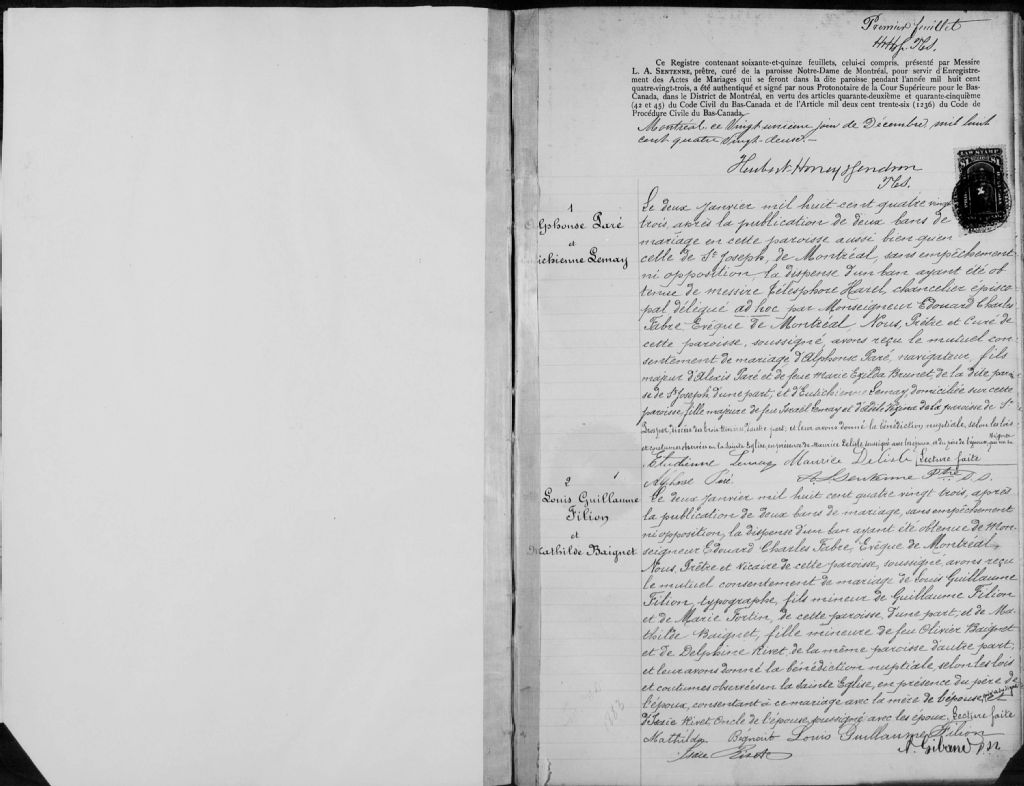 Premier feuillet
Ce Registre contenant soixante-et-quinze feuillets, celui-ci compris, présenté par Messire
L. A. SENTENNE, prêtre, curé de la paroisse Notre-Dame de Montréal, pour servir d'Enregistre-
ment des Actes de Mariages qui se feront dans la dite paroisse pendant l'année mil huit cent
quatre-vingt-trois, a été authentiqué et signé par nous Protonotaire de la Cour Supérieure pour le Bas-
Canada, dans le District de Montréal, en vertu des articles quarante-deuxième et quarante-cinquième
(42 et 45) du Code Civil du Bas-Canada et de l'Article mil deux cent trente-six (1236) du Code de
Procédure Civile du Bas-Canada.
Montréal ce Vingt unième jour de Décembre mil huit
cent quatre vingt-deux.-
Hubert Honey & Gendron
LAW STAMP
1
Alphonse Paré
et
ichienne Lemay
Le deux janvier mil huit cent quatre vingt
trois, après la publication de deux bans de
mariage en cette paroisse aussi bien qu'en
celle de St Joseph, de Montréal, sans empêchement
ni opposition, la dispense d'un ban ayant été ob
tenue de messire Télesphore Harel, chancelier épisco-
pal délégué ad hoc par Monseigneur Edouard Charles
Fabre Evêque de Montréal, Nous, Prêtre et Curé de
cette paroisse, soussigné, avons reçu le mutuel con
sentement de mariage d'Alphonse Paré, navigateur, fils
majeur d'Alexis Paré et de feue Marie Exilda Brunet, de la dite parois
se de St Joseph, d'une part; et d'Eutichienne Lemay, domiciliée sur cette
paroisse, fille majeure de feu Israël Lemay et d' de la paroisse de St
Prosper, diocèse des Trois Rivières, d'autre part; et leur avons donné la bénédiction nuptiale, selon les lois
et coutumes observées en la Sainte Eglise, en présence de Maurice Delisle, soussigné avec les époux, et du père de l'époux, qui
Etudienne Lemay Maurice Delisle Lecture faite
Alphonse Paré A. Sentenne Ptre S.S.
2
Louis Guillaume
Filion
et
Mathilde Baignet
Le deux janvier mil huit cent quatre vingt trois, après
la publication de deux bans de mariage, sans empêchement
ni opposition, la dispense d'un ban ayant été obtenue de Mon-
seigneur Edouard Charles Fabre, Evêque de Montréal,
Nous, Prêtre et Vicaire de cette paroisse, soussigné, avons reçu
le mutuel consentement de mariage de Louis Guillaume
Filion, typographe, fils mineur de Guillaume Filion
et de Marie Fortin, de cette paroisse, d'une part, et de Ma-
thilde Baignet, fille mineure de feu Olivier Baignet
et de Delphine Rivet, de la même paroisse d'autre part;
et leur avons donné la bénédiction nuptiale, selon les lois
et coutumes observées en la Sainte Eglise, en présence du père de
l'époux, consentant à ce mariage avec la mère de l'épouse, et
d'Isaïe Rivet, Oncle de l'épouse, soussigné avec les époux. Lecture faite
Mathilda Louis Guillaume Filion
Isaie Rivet